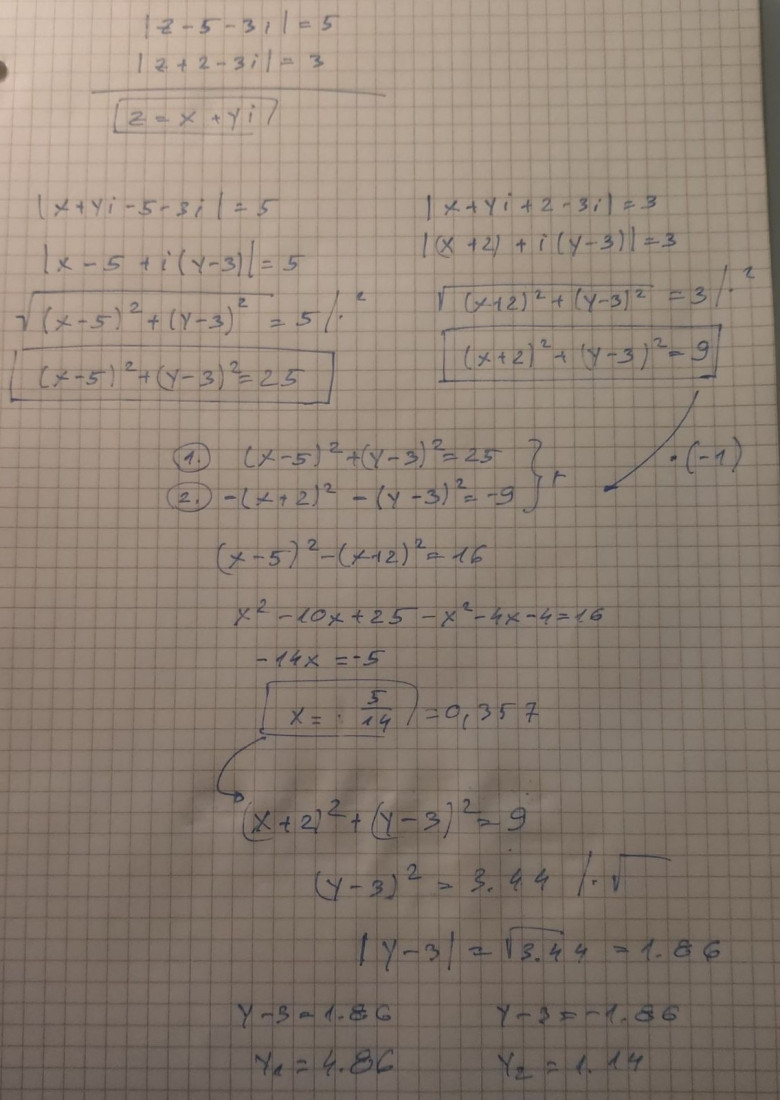 |z-5-3i|=5
|z+2-3i|=3
z=x+yi
|x+yi-5-3i|=5
|x-5+i(y-3)|=5
√((x-5)²+(y-3)²)=5/·²
(x-5)²+(y-3)²=25
|x+yi+2-3i|=3
|(x+2)+i(y-3)|=3
√((x+2)²+(y-3)²)=3/·²
(x+2)²+(y-3)²=9
1. (x-5)²+(y-3)²=25 } + ·(-1)
2. -(x+2)²-(y-3)²=-9
(x-5)²-(x+2)²=16
x²-10x+25-x²-4x-4=16
-14x=-5
x=5/14=0,357
(x+2)²+(y-3)²=9
(y-3)²=3.44 /·√
|y-3|=√3.44=1.86
y-3=1.86 y-3=-1.86
y₁=4.86 y₂=1.14